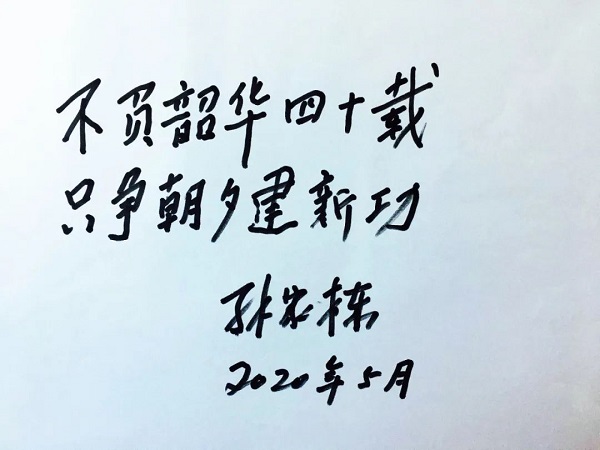 不负韶华四十载
只争朝夕建新功
孙家栋
2020年5月